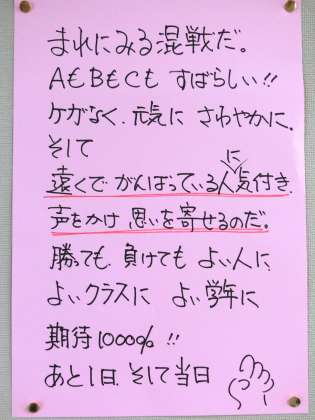 まれにみる混戦だ。
AもBもCも すばらしい!!
ケガなく、元気に さわやかに、
そして
遠くで がんばっている人に気付き、
声をかけ 思いを寄せるのだ。
勝っても、負けても よい人に、
よいクラスに よい学年に
期待1000% !!
あと1日、そして当日